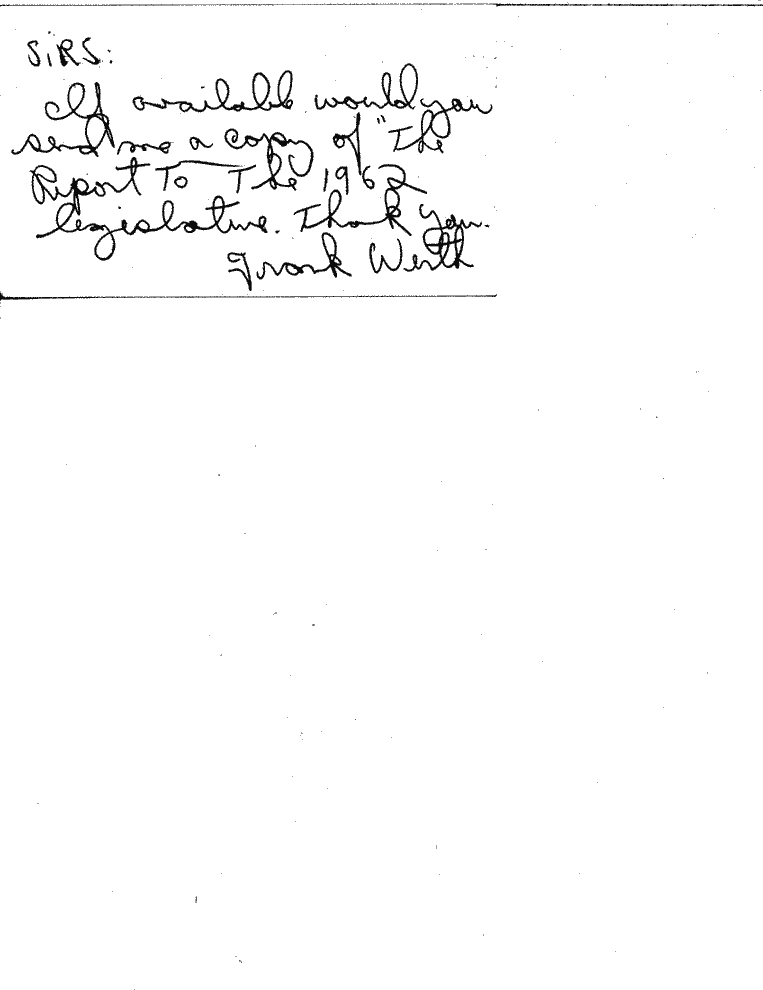 SiRS:
If available would you
send me a copy of "The
Report To The 1962
legislative. Thank you.
Frank Werth